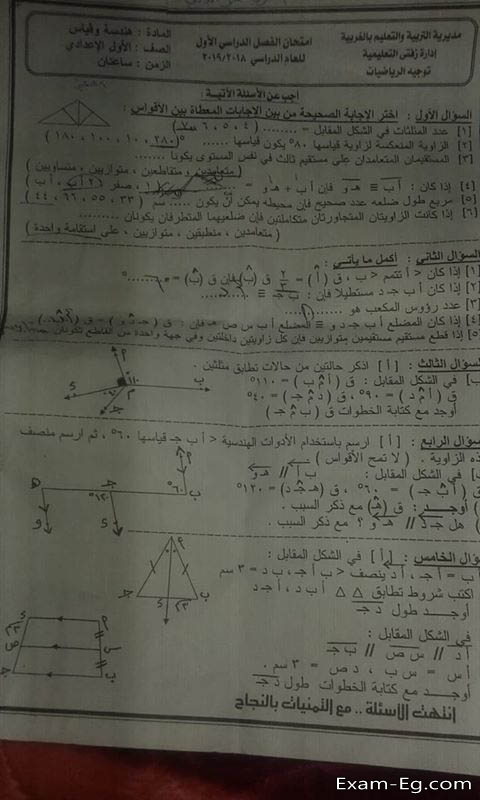 مديرية التربية والتعليم بالغربية
إدارة زفتى التعليمية
توجيه الرياضيات
امتحان الفصل الدراسي الأول
للعام الدراسي ٢٠١٩/٢٠١٨
المادة : هندسة وقياس
الصف : الأول الإعدادي
الزمن : ساعتان
أجب عن الأسئلة الآتية :
السؤال الأول : اختر الإجابة الصحيحة من بين الإجابات المعطاة بين الأقواس :
[١] عدد المثلثات في الشكل المقابل = ........ ( ٤ ، ٥ ، ٦ ، ٧ )
[٢] الزاوية المنعكسة لزاوية قياسها ٨٠° يكون قياسها ...... ( ٢٨٠ ، ١٠ ، ١٠٠ ، ١٨٠ )
[٣] المستقيمان المتعامدان على مستقيم ثالث في نفس المستوى يكونا ........
( متعامدين ، متقاطعين ، متوازيين ، متساويين )
[٤] إذا كان : أ ب ≡ هـ و فإن أ ب + هـ و = ........ صفر ، ٢ أ ب ، أ ب )
[٥] مربع طول ضلعه عدد صحيح فإن محيطه يمكن أن يكون ..... سم ( ٣٣ ، ٥٥ ، ٦٦ ، ٤٤ )
[٦] إذا كانت الزاويتان المتجاورتان متكاملتين فإن ضلعيهما المتطرفان يكونان .........
( متعامدين ، منطبقين ، متوازيين ، على استقامة واحدة )
السؤال الثاني : أكمل ما يأتي :
[١] إذا كان < أ تتمم < ب ، ق ( أ ) = ٢/٣ ق ( ب ) فإن ق ( ب ) = ......°
[٢] إذا كان أ ب جـ د مستطيلا فإن : ب جـ ≡ ........
[٣] عدد رؤوس المكعب هو ........
[٤] إذا كان المضلع أ ب جـ د و ≡ المضلع أ ب س ص هـ فإن : ق ( جـ د و ) = ق (
[٥] إذا قطع مستقيم مستقيمين متوازيين فإن كل زاويتين داخلتين وفي جهة واحدة من القاطع تكونان
السؤال الثالث : [ أ ] اذكر حالتين من حالات تطابق مثلثين .
ب] في الشكل المقابل : ق ( أ م ب ) = ١١٠°
ق ( أ م د ) = ٩٠° ، ق ( د م جـ ) = ٤٠°
أوجد مع كتابة الخطوات ق ( ب م جـ )
السؤال الرابع : [ أ ] ارسم باستخدام الأدوات الهندسية < أ ب جـ قياسها ٦٠° ، ثم ارسم منصف
هذه الزاوية . ( لا تمح الأقواس )
ب] في الشكل المقابل : ب أ // هـ و
ق ( أ ب جـ ) = ٦٠° ، ق ( هـ جـ د ) = ١٢٠°
) أوجد : ق ( هـ ) مع ذكر السبب .
) هل جـ د // هـ و ؟ مع ذكر السبب .
السؤال الخامس : [ أ ] في الشكل المقابل :
أ ب = أ جـ ، أ د ينصف < ب أ جـ ، ب د = ٣ سم
اكتب شروط تطابق △ △ أ ب د ، أ جـ د
أوجد طول د جـ
في الشكل المقابل :
أ د // س ص // ب جـ
أ س = س ب ، د ص = ٣ سم .
أوجد مع كتابة الخطوات طول د جـ
انتهت الأسئلة .. مع التمنيات بالنجاح
Exam-Eg.com